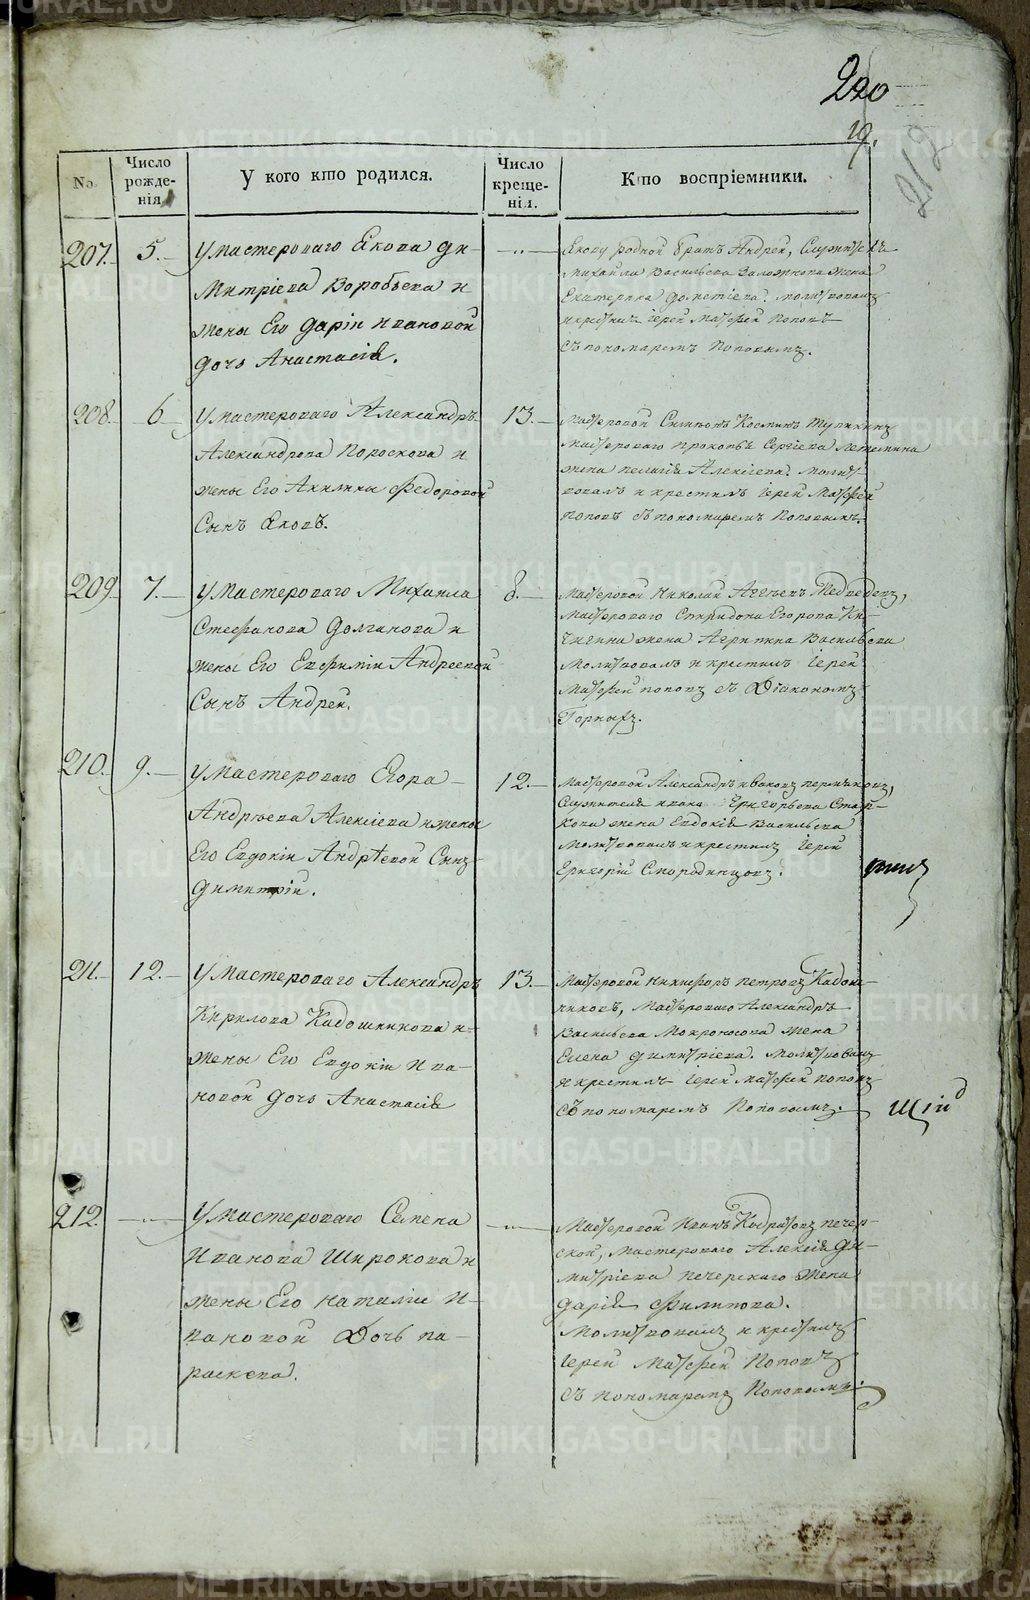 220
19.
212
No.
Число рожденія
У кого кто родился.
Число крещенія.
Кто воспріемники.
207. 5.
У мастероваго Якова Ди-
митріева Воробьева и
жены Его Даріи Ивановой
дочь Анастасія.
Якову родной братъ Андрей,
Михаила Васильева жена
Екатерина молитвовалъ
и крестилъ Іерей Матѳей Поповъ
съ пономаремъ Поповымъ.
208. 6
У мастероваго Александръ
Александрова Пороскова и
жены Его Акилины Федоровой
Сынъ Яковъ.
13.
Мастеровой Козминъ
Мастероваго Прокопья Сергіева
жена Пелагія Алексіева. молит
вовалъ и крестилъ Іерей Матѳей
Поповъ съ пономаремъ Поповымъ.
209. 7.
У Мастероваго Михаила
Стефанова Долганова и
жены Его Евфиміи Андреевой
Сынъ Андрей.
8.
Мастеровой Николай Медведевъ,
Мастероваго Спиридона Егорова Ки-
чигина жена Агрипина Васильева
Молитвовалъ и крестилъ Іерей
Матѳей Поповъ съ Діакономъ
Горныхъ.
210. 9.
У Мастероваго Егора
Андрѣева Алексіева и жены
Его Евдокіи Андрѣевой Сынъ
Димитрій.
12.
Мастеровой Александръ Ивановъ Пермяковъ,
Служителя Ивана Григорьева
жена Евдокія Васильева
Молитвовалъ и крестилъ Іерей
Григорій Смородинцовъ.
211. 12.
У Мастероваго Александръ
Кирилова Кадошникова и
жены Его Евдокіи Ива-
новой дочь Анастасія
13.
Мастеровой Никифоръ Петровъ Кадош-
никовъ, Мастероваго Александръ
Васильева Мокроносова жена
Елена Димитріева. Молитвовалъ
и крестилъ Іерей Матѳей Поповъ
съ пономаремъ Поповымъ.
212.
У Мастероваго Семена
Иванова Широкова и
жены Его Наталіи И-
вановой Дочь Па-
раскева.
Мастеровой Иванъ Кодратовъ Печер-
ской, Мастероваго Алексія Ди-
митріева Печерскаго жена
Дарія Филипова.
Молитвовалъ и крестилъ
Іерей Матѳей Поповъ
съ Пономаремъ Поповымъ.
METRIKI.GASO-URAL.RU